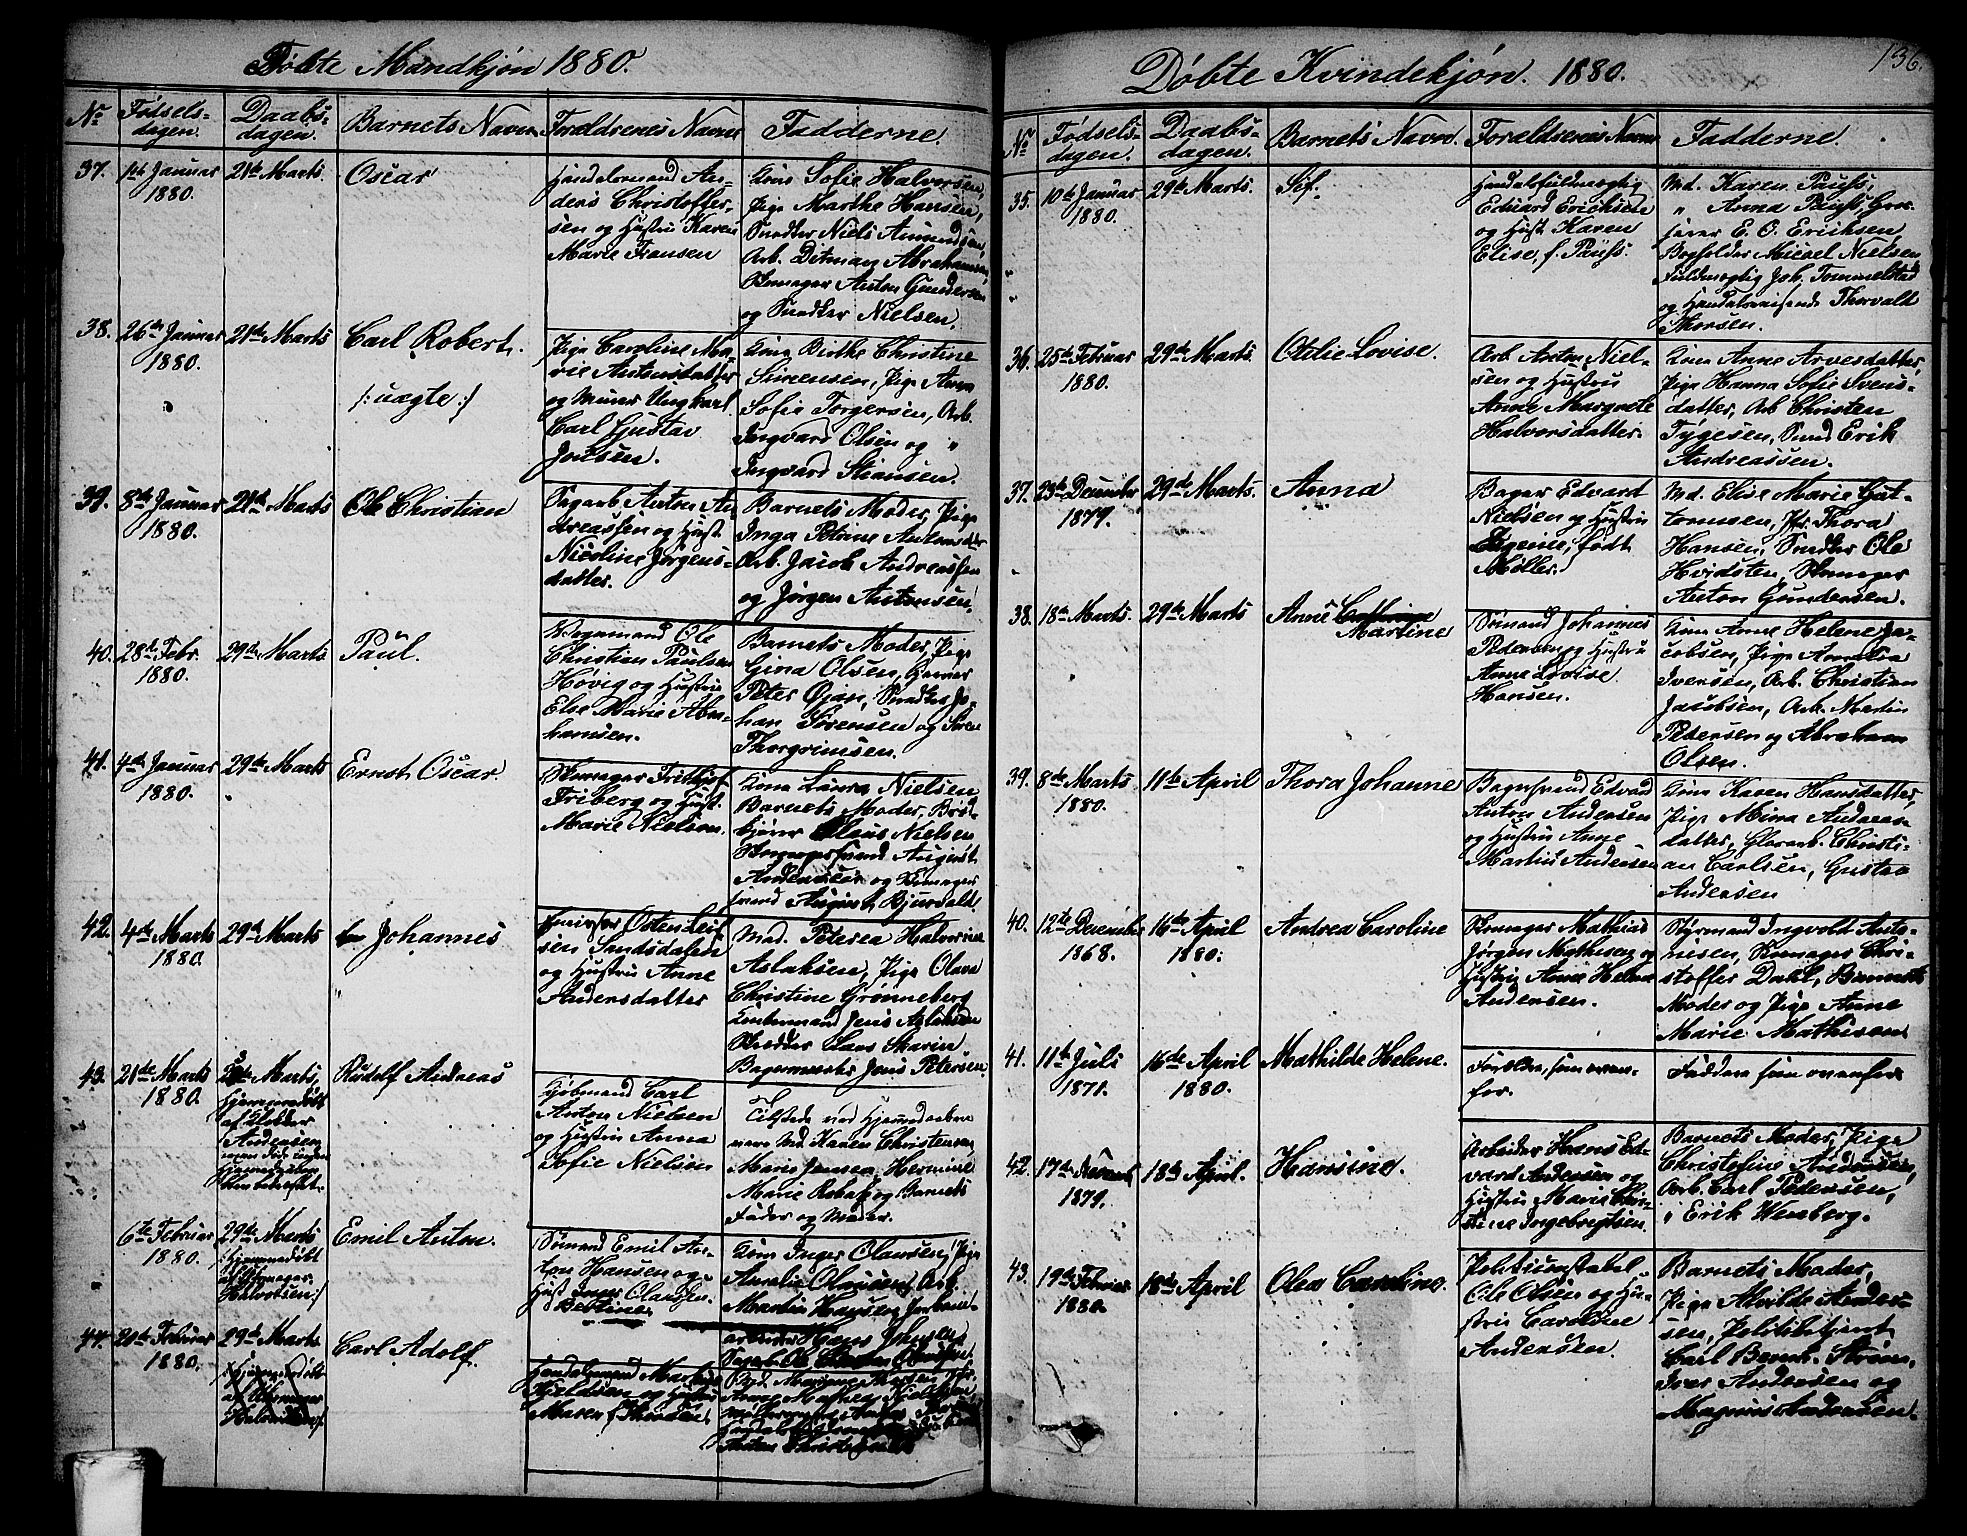 Døbte Mandkjøn 1880.
No
Fødsels-
dagen.
Daabs-
dagen.
Barnets Navn
Forældrenes Navne
Fadderne.
37.
1ste Januar
1880.
21de Marts
Oscar
Handelsmand An-
ders Christoffer-
sen og Hustru Karen
Marie Fransen
Kone Sofie Halvorsen,
Pige Marthe Hansen,
Snedker Niels Amundsen,
Arb. Ditman Abrahamsen,
Skomager Anton Gundersen
og Snedker Nielsen.
38.
26de Januar
1880.
21de Marts
Carl Robert.
/: uægte :/
Pige Caroline Ma-
rie Antonsdatter
og Murer Ungkarl
Carl Gustav
Kone Birthe Christine
Simensen, Pige Anna
Sofie Torgersen, Arb.
Ingvard Olsen og "
Ingvard Stiansen.
39.
8de Januar
1880.
21de Marts
Ole Christian
Sagarb. Anton An-
dreassen og Hust.
Nicoline Jørgens-
datter.
Barnets Moder, Pige
Inga Petrine Antonsdtr
Arb. Jacob Andreassen
og Jørgen Antonsen.
40.
28de Febr.
1880.
29de Marts
Paul.
Vognmand Ole
Christian Paulsen
Høvig og Hustru
Else Marie Abra-
hamsen.
Barnets Moder, Pige
Gina Olsen,
Peter Øian, Snedker Jo-
han Sørensen og Søren
Thorgrimsen.
41.
4de Januar
1880.
29de Marts
Ernst Oscar.
Skomager Frithjof
Friberg og Hust.
Marie Nielsen.
Kone Laura Nielsen
Barnets Moder, Brød-
kjører Claus Nielsen
Skomagersvend August
Andersen og Skomager
svend August Bjurdalt.
42.
4de Marts
1880.
29de Marts
Johannes
Østen Leif-
sen Sundsdalen
og Hustru Anne
Andersdatter
Mad. Peterea Halvorine
Aslaksen, Pige Olava
Christine Grønneberg
Jens Aslaksen
Skrædder Lars Skarin
Bagermester Jens Petersen.
43.
21de Marts
1880.
Marts,
hjemmedøbt
af Skolelærer
Andersen
Rudolf Andreas
Kjøbmand Carl
Anton Nielsen
og Hustru Anna
Sofie Nielsen
Tilstede ved Hjemmedaaben
vare Md. Karen Christensen,
Marie Jensen, Hermine
Marie Robak og Barnets
Fader og Moder.
6te Februar
1880.
29de Marts
/: hjemmedøbt
af Skomager
Halvorsen :/
Emil Anton.
Sømand Emil An-
ton Hansen og
Hust. Inger Olausen.
Bertine
Kone Inger Olausen, Pige
Aurelie Olausen, Arb.
Martin Hansen, Jernbane-
arbeider Hans Johnsen
44.
20de Februar
1880.
29de Marts
Carl Adolf.
Handelsmand
og Hustru
Anton Christensen
Døbte Kvindekjøn. 1880.
136.
No
Fødsels-
dagen.
Daabs-
dagen.
Barnets Navn.
Forældrenes Navne
Fadderne.
35.
10de Januar
1880.
29de Marts.
Sif.
Handelsfuldmægtig
Eduard Erichsen
og Hust. Karen
Elise f. Pauss.
Md. Karen Pauss,
" Anna Pauss, Gros-
serer E. O. Eriksen
Bogholder Misael Nielsen
Fuldmægtig Joh. Tommelstad
og Handelsreisende Thorvald
Thorsen.
36.
25de Februar
1880.
29de Marts.
Otilie Lovise.
Arb. Anton Niel-
sen og Hustru
Anne Margrete
Halvorsdatter.
Kone Anne Arvesdatter,
Pige Hanna Sofie Svens-
datter, Arb. Christen
Tygesen, Smed Erik
Andreassen.
37.
23de December
1879.
29de Marts.
Anna
Bager Edvard
Nielsen og Hustru
Eugenie, født
Møller.
Md. Elise Marie Gut-
tormsen, Fr. Thora
Hansen, Snedker Ole
Hvidsten, Skomager
Anton Gundersen.
38.
18de Marts.
29de Marts
Anne Cathrine
Martine
Sømand Johannes
Pedersen og Hustru
Anne Lovise
Hansen.
Kone Anne Helene Ja-
cobsen, Pige Amalia
Iversen, Arb. Christian
Jacobsen, Arb. Martin
Pedersen og Abraham
Olsen.
39.
8de Marts
1880.
11te April
Thora Johanne
Bagersvend Edvard
Anton Andersen
og Hustru Anne
Martine Andersen
Kone Karen Hansdatter,
Pige Mina Andreas-
datter, Glasarb. Christi-
an Carlsen, Gustav
Andersen
40.
12te December
1868.
16de April
1880.
Andrea Caroline
Skomager Mathias
Jørgen Mathisen og
Hustru Anne Helene
Andersen.
Styrmand Ingvold Anto-
nisen, Skomager Chri-
stoffer Dahl, Barnets
Moder og Pige Anne
Marie Mathisen.
41.
11te Juli
1871.
16de April
1880.
Mathilde Helene.
Forældre, som oven-
for.
Faddere som ovenfor
42.
17de
1879.
18de April.
Hansine.
Arbeider Hans Ed-
vard Andersen og
Hustru Marie Chri-
stine Ingebregtsen.
Barnets Moder, Pige
Christofine Andersen,
Arb. Carl Pedersen,
" Erik Wenberg.
43.
19de Februar
1880.
18de April
Olea Caroline.
Politiconstabel
Ole Olsen og Hu-
stru Caroline
Andersen.
Barnets Moder,
Pige Alvilde Ander-
sen, Politibetjent
Carl Bernh. Strøm,
Iver Andersen og
Magnus Andersen.